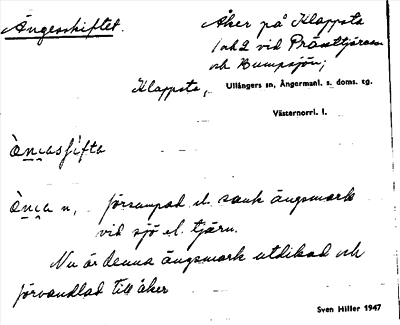 Ängesshiftet. Åker på Klappsta
1 och 2 vid Prästtjärnen
och Bumpsjön;
Klappsta, Ullångers sn, Ångermanl. s. doms. tg.
Västernorrl. l.
òŋcasʃifta
òŋca n, försumpad el. sank ängsmark
vid sjö el. tjärn.
Nu är denna ängsmark utdikad och
förvandlad till åker
Sven Hiller 1947